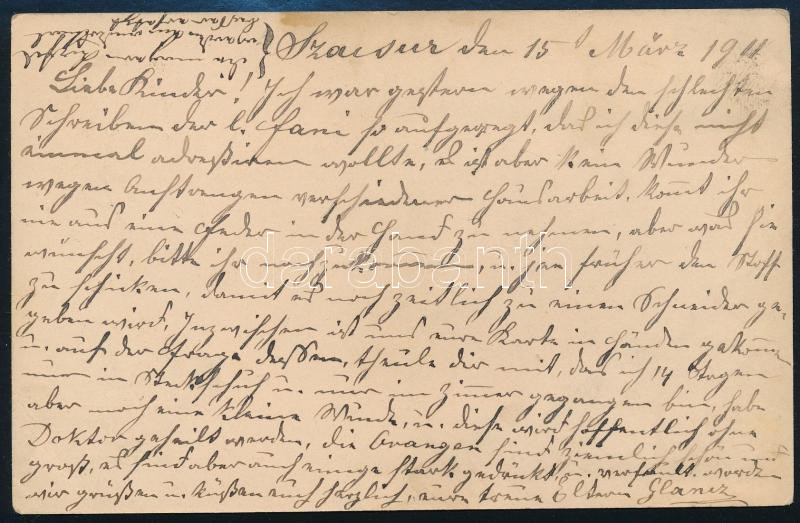 Szaisur den 15 März 1911
Liebe Kinder! Ich war gestern wegen den schlechten
Schreiben der l. Fani so aufgeregt, das ich diese nicht
einmal adreßiren wollte, es ist aber kein Wunder
wegen verschiedener Hausarbeit, kommt ihr
nie aus eine Feder in der Hand zu nehmen, aber was sie
wünscht, bitte ihr nachzukommen, u. ihr früher den Stoff
zu schicken, damit es noch zeitlich zu einen Schneider ge-
geben wird, Inzwischen ist uns eure Karte in Händen gekommen
u. auf der Frage dessen, theile dir mit, das ich 14 Tagen
nur in u. nur im Zimmer gegangen bin, habe
aber noch eine kleine Wunde, u. diese wird hoffentlich ohne
Doktor geheilt werden, die Orangen sind ziemlich schön und
groß, es sind aber auch einige stark gedrückt u. verfault worden
wir grüßen u. küßen euch herzlich, eure treue Eltern Glancz
darabanth